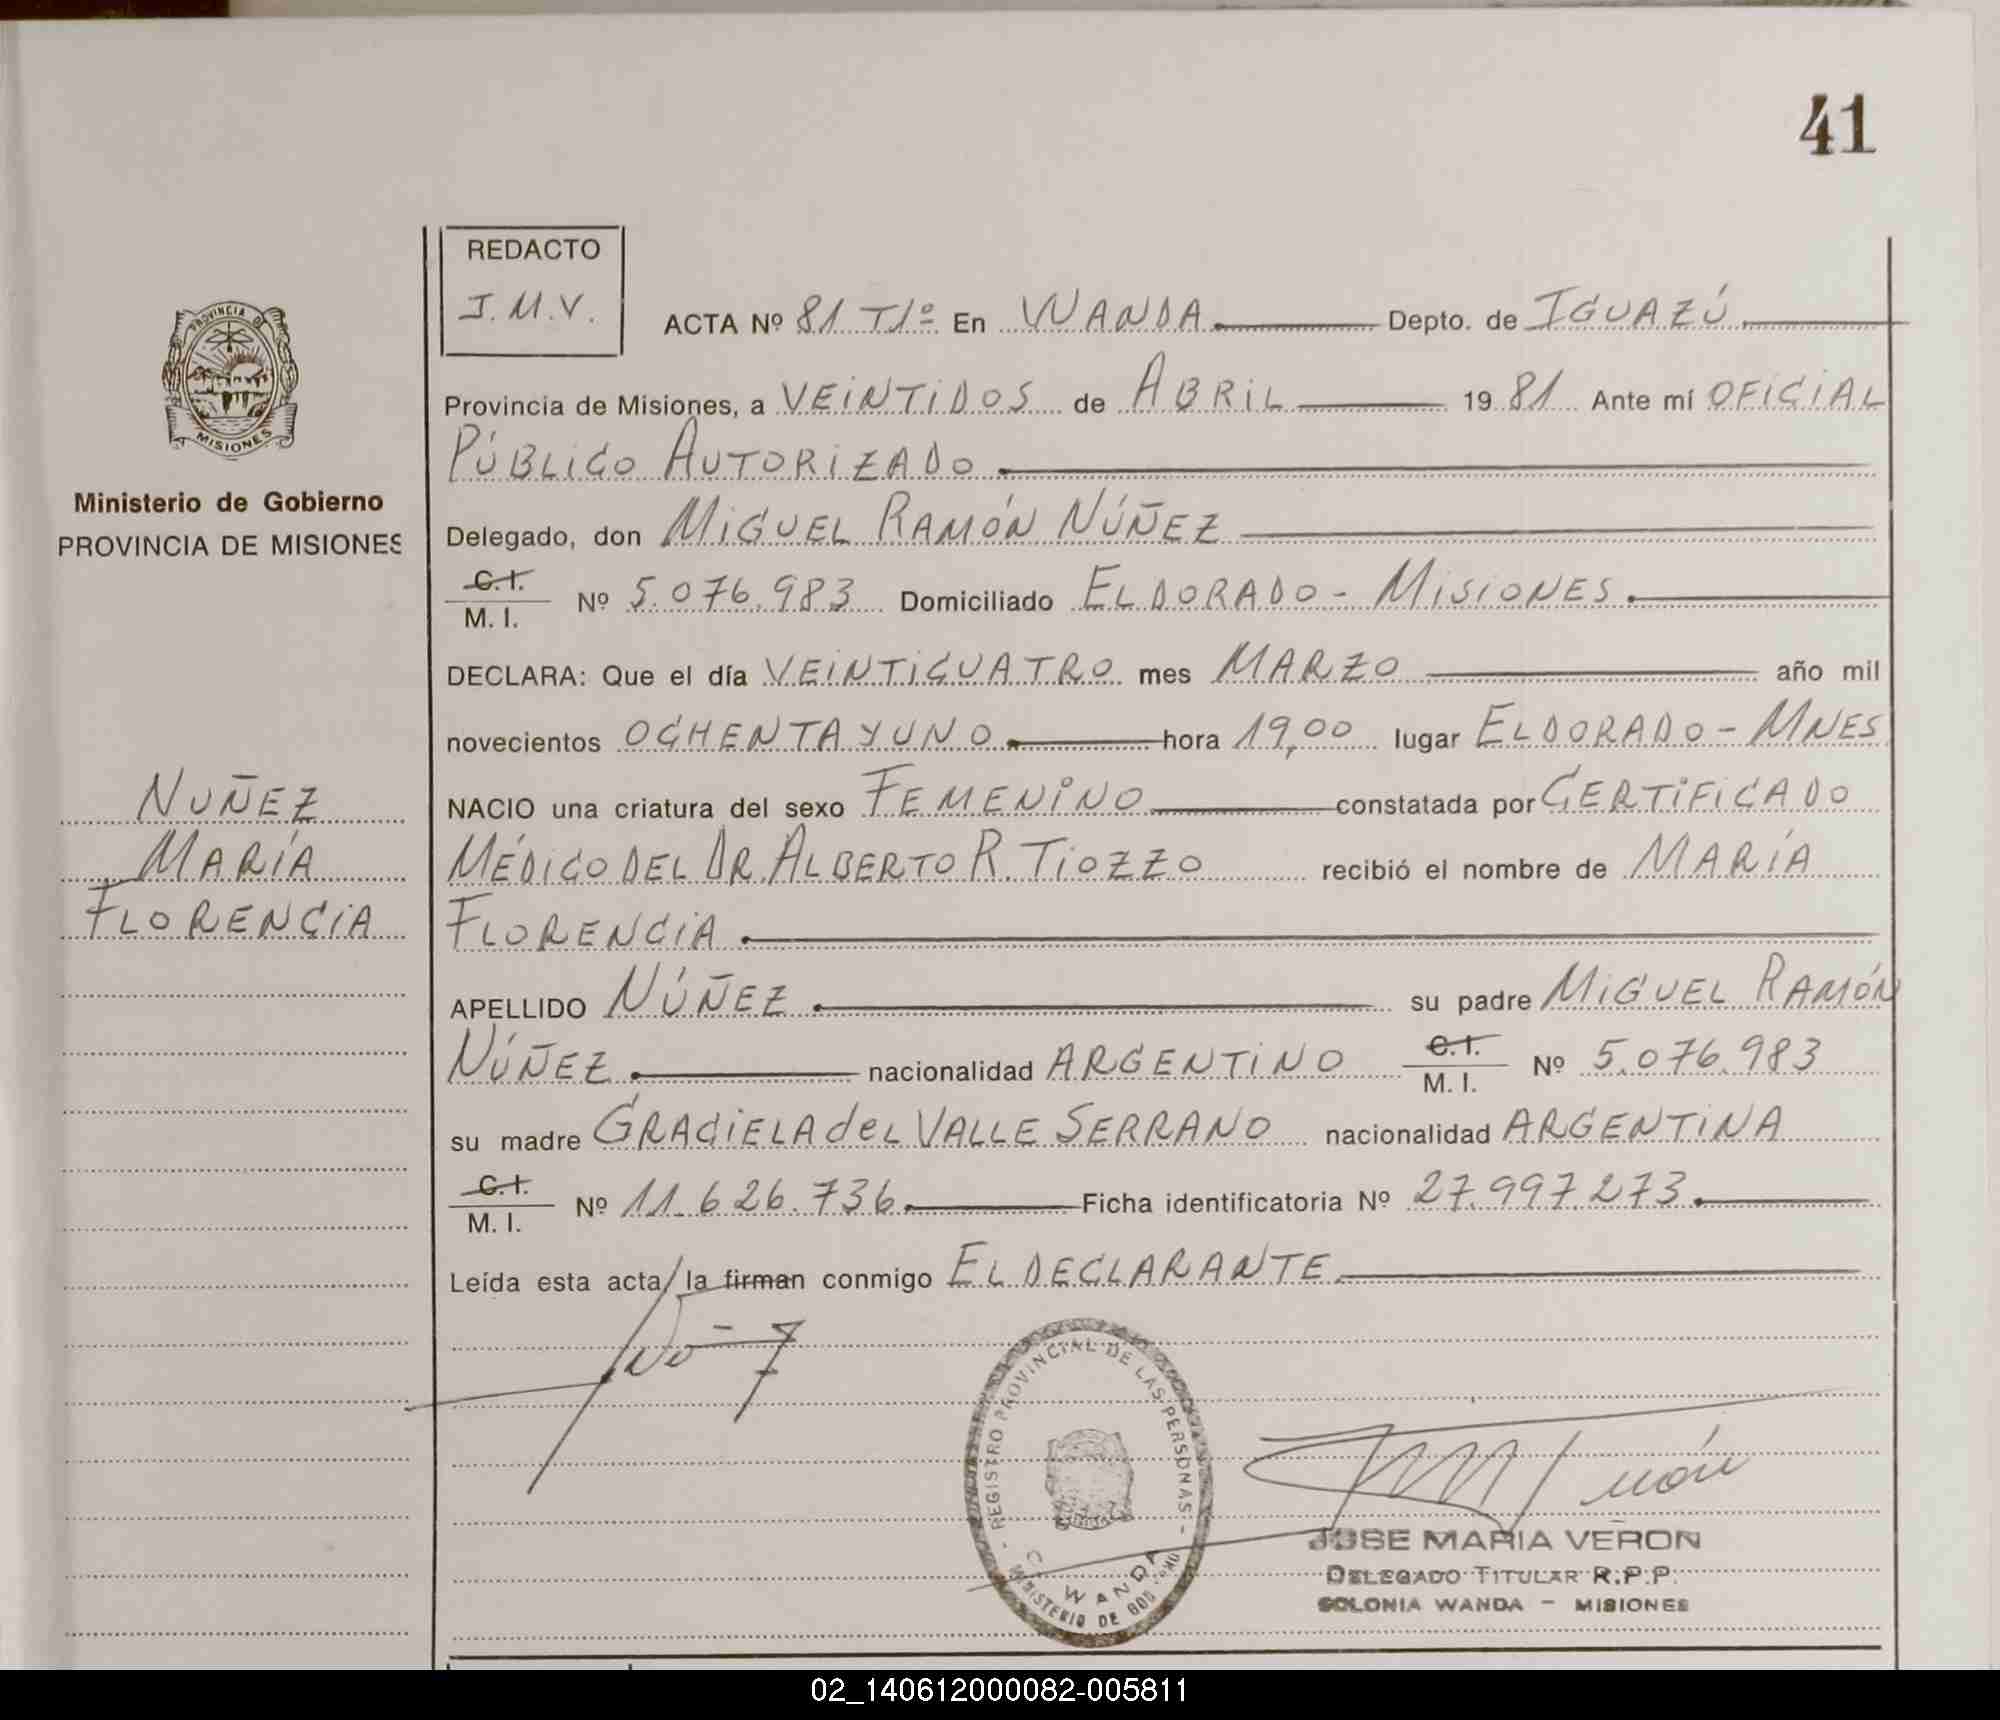 41
REDACTO
J.M.V.
ACTA Nº 81 T1º En WANDA Depto. de IGUAZÚ
Provincia de Misiones, a VEINTIDOS de ABRIL 1981 Ante mí OFICIAL
PÚBLICO AUTORIZADO
Delegado, don MIGUEL RAMÓN NÚÑEZ
C.I.
M.I. Nº 5.076.983 Domiciliado ELDORADO - MISIONES
DECLARA: Que el día VEINTICUATRO mes MARZO año mil
novecientos OCHENTA Y UNO hora 19,00 lugar ELDORADO - MNES
NACIO una criatura del sexo FEMENINO constatada por CERTIFICADO
MÉDICO DEL DR. ALBERTO R. TIOZZO recibió el nombre de MARÍA
FLORENCIA
APELLIDO NÚÑEZ su padre MIGUEL RAMÓN
NÚÑEZ nacionalidad ARGENTINO C.I.
M.I. Nº 5.076.983
su madre GRACIELA del VALLE SERRANO nacionalidad ARGENTINA
C.I.
M.I. Nº 11.626.736 Ficha identificatoria Nº 27.997.273
Leída esta acta la firman conmigo EL DECLARANTE
PROVINCIA DE
MISIONES
Ministerio de Gobierno
PROVINCIA DE MISIONES
NUÑEZ
MARÍA
FLORENCIA
REGISTRO PROVINCIAL DE LAS PERSONAS
WANDA
MINISTERIO DE GOB
JOSE MARIA VERON
DELEGADO TITULAR R.P.P.
COLONIA WANDA - MISIONES
02_140612000082-005811